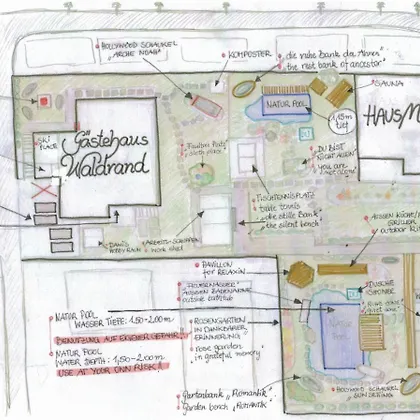 HOLLYWOOD SCHAUKEL
"ARCHE NOAH"
KOMPOSTER
die ruhe Bank der Ahnen
the rest bank of ancestor
SAUNA
NATUR POOL
1,45m
tief
HAUS/M
SKI
PLACE
Gästehaus
Waldrand
"Faulenz Platz"
sloth place
"DU BIST
NICHT ALLEIN"
"you are
not alone"
TISCHTENNISPLATZ
table tennis
"die stille Bank"
"the silent bench"
AUSSEN KÜCHE/
GRILLEN
outdoor
HOBBY RAUM
ARBEITSSCHUPPEN
work shed
PAVILLON
for RELAXIN
AUSSEN BADEWANNE
outside bathtub
DUSCHE
SHOWER
NATUR POOL
WASSER TIEFE: 1,50-2,00m
BENUTZUNG AUF EIGENE GEFAHR!!
NATUR POOL
WATER DEPTH: 1,50-2,00m
USE AT YOUR OWN RISK!!
ROSENGARTEN
IN DANKBARER
ERINNERUNG
rose garden
in grateful memory
NATUR
POOL
Gartenbank "Romantik"
garden bench "ROMANTIK"
HOLLYWOOD SCHAUKEL